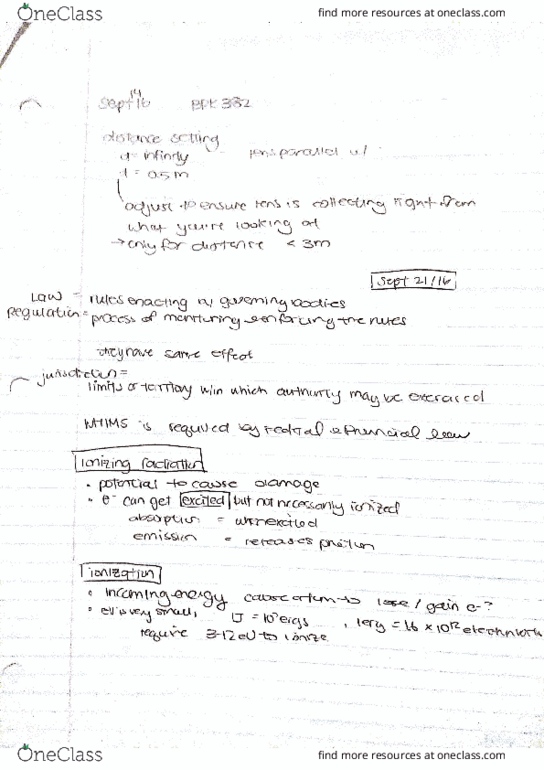 OneClass
find more resources at oneclass.com
Sept 16 BPK 382
14
distance setting
d = infinity lens parallel w/
d = 0.5m
adjust to ensure lens is collecting right from
what you're looking at
→ only for distance < 3m
Sept 21/16
Law = rules enacting w/ governing bodies
Regulation = process of monitoring enforcing the rules
they have same effect
jurisdiction =
limits or territory w/in which authority may be exercised
WHIMS is required by Federal & Provincial law
Ionizing radiation
• potential to cause damage
• e⁻ can get excited but not necessarily ionized
absorption = when excited
emission = releases photon
ionization
• incoming energy cause atom to lose / gain e-?
• eV is very small, J = 10⁷ ergs , 1 erg = 1.6 x 10¹² electron volts
require 3-12 eV to ionize
OneClass
find more resources at oneclass.com